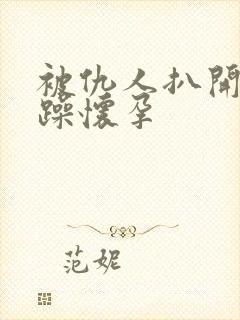 被仇人扒開
躁懷孕
范妮